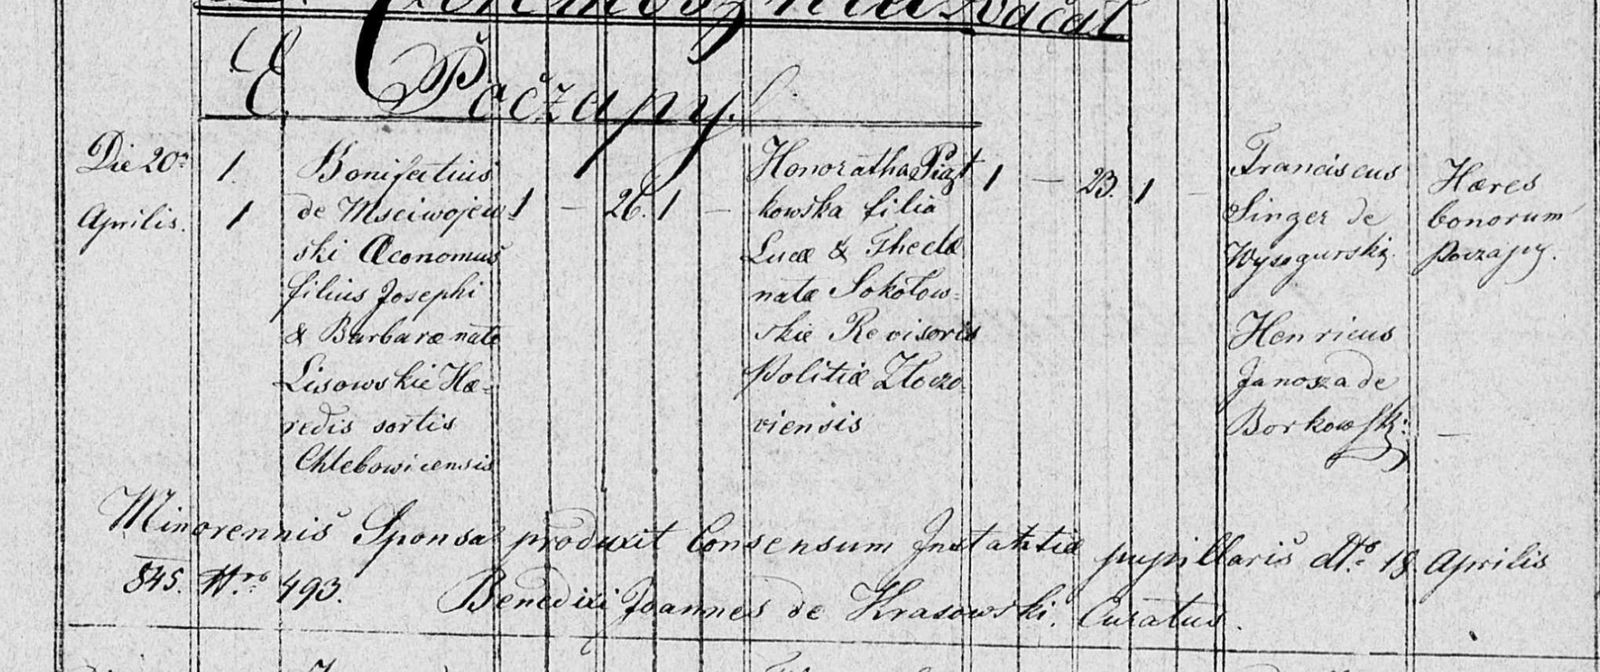 Vacat
E Poczapy.
Die 20ª
Aprilis.
1.
1
Bonifatius
de Msciwojew-
ski Œconomus
filius Josephi
& Barbaræ natæ
Lisowskie Hæ-
redis sortis
Chlebowicensis
1 – 26. 1 –
Honoratha Piąt
kowska filia
Lucæ & Theclæ
natæ Sokołow-
skie Revisoris
Politiæ Złoczo
viensis
1 – 23. 1 –
Franciscus
Singer de
Wysogurski
Henricus
Janosza de
Borkowski
Hæres
bonorum
Poczapy.
–
Minorennis Sponsa produxit Consensum Instantiæ pupillaris dtto 18 Aprilis
845. Nro 493. Benedixi Joannes de Krasowski. Curatus.